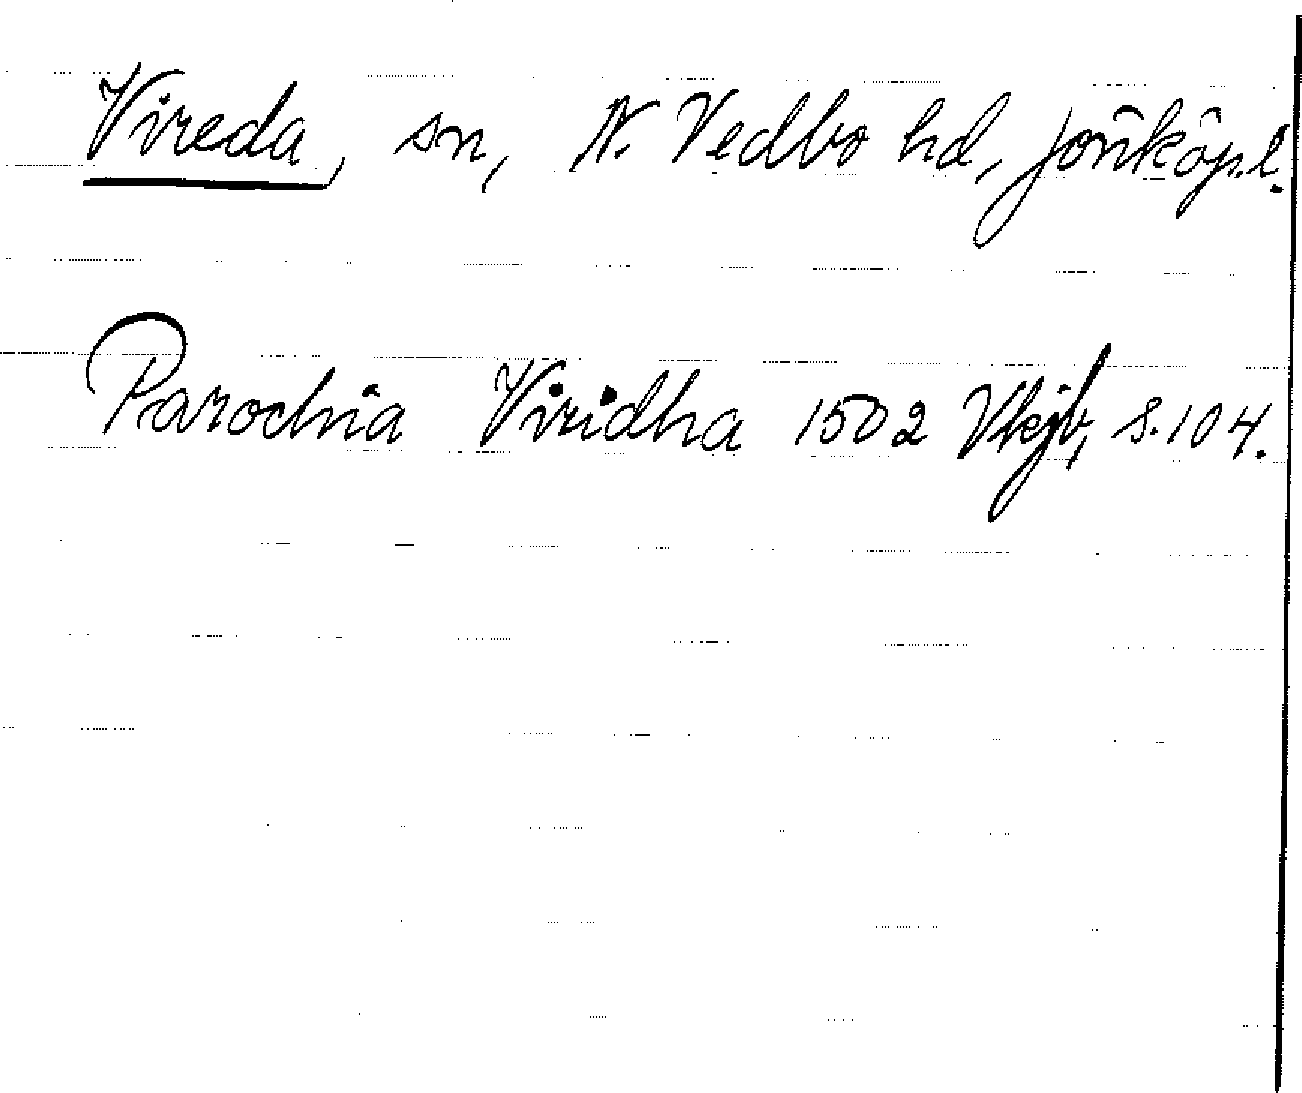 Vireda, sn, N. Vedbo hd, Jönköp.l.
Parochia Viridha 1502 Vkjb, s. 104.